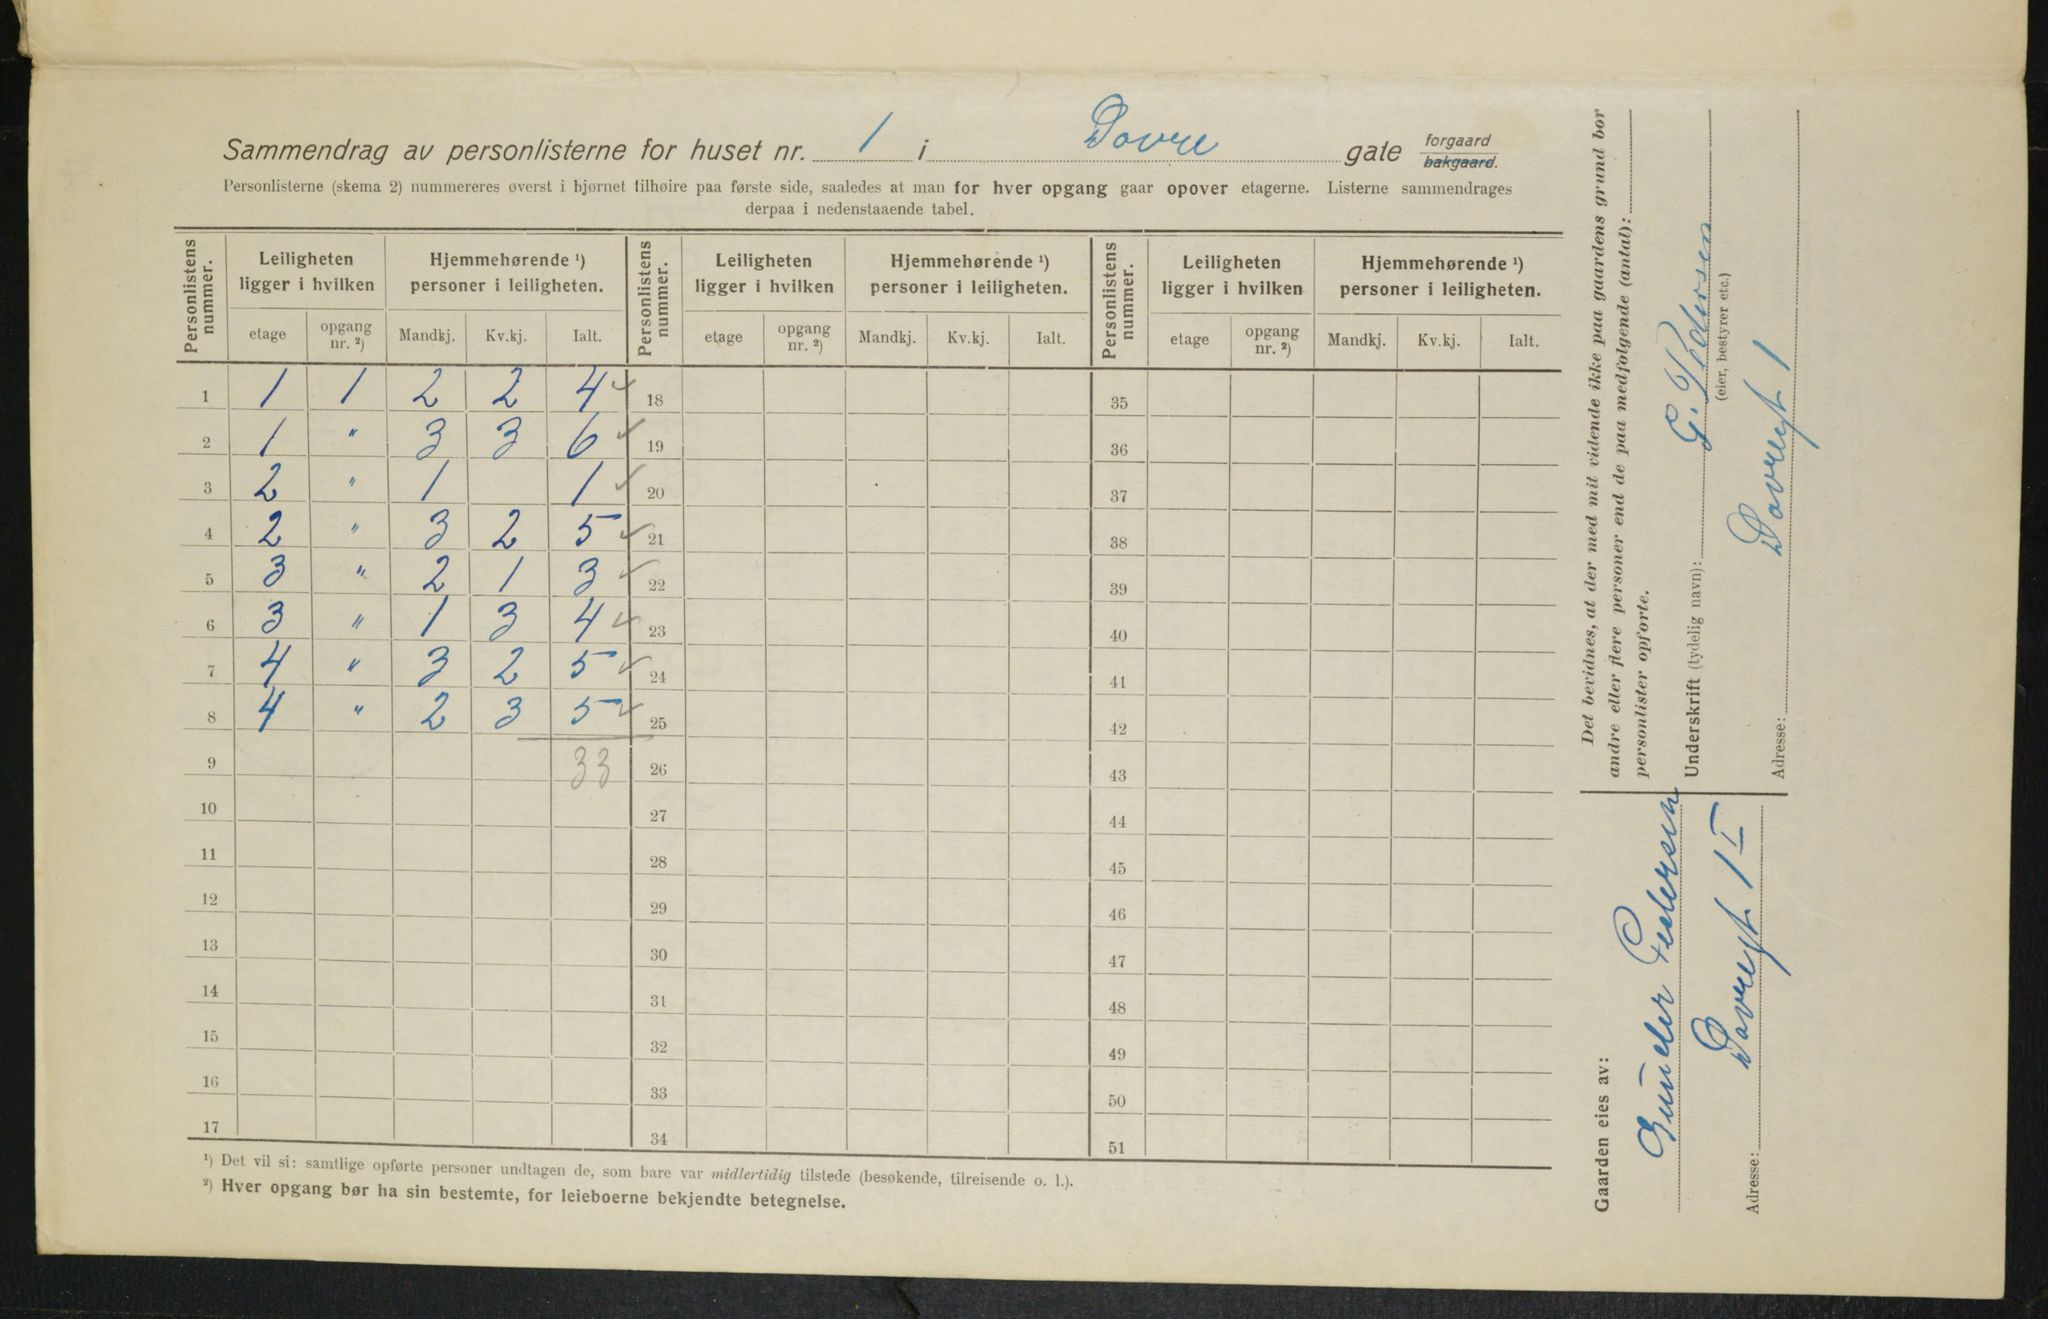 Sammendrag av personlisterne for huset nr. 1 i Dovre gate forgaard bakgaard.
Personlisterne (skema 2) nummereres øverst i hjørnet tilhøire paa første side, saaledes at man for hver opgang gaar opover etagerne. Listerne sammendrages
derpaa i nedenstaaende tabel.
Personlistens nummer. Leiligheten ligger i hvilken Hjemmehørende ¹) personer i leiligheten. Personlistens nummer. Leiligheten ligger i hvilken Hjemmehørende ¹) personer i leiligheten. Personlistens nummer. Leiligheten ligger i hvilken Hjemmehørende ¹) personer i leiligheten.
etage opgang nr. ²) Mandkj. Kv.kj. Ialt. etage opgang nr. ²) Mandkj. Kv.kj. Ialt. etage opgang nr. ²) Mandkj. Kv.kj. Ialt.
1 1 1 2 2 4 ✓ 18 35
2 1 " 3 3 6 ✓ 19 36
3 2 " 1 1 ✓ 20 37
4 2 " 3 2 5 ✓ 21 38
5 3 " 2 1 3 ✓ 22 39
6 3 " 1 3 4 ✓ 23 40
7 4 " 3 2 5 ✓ 24 41
8 4 " 2 3 5 ✓ 25 42
9 33 26 43
10 27 44
11 28 45
12 29 46
13 30 47
14 31 48
15 32 49
16 33 50
17 34 51
¹) Det vil si: samtlige opførte personer undtagen de, som bare var midlertidig tilstede (besøkende, tilreisende o. l.).
²) Hver opgang bør ha sin bestemte, for leieboerne bekjendte betegnelse.
Det bevidnes, at der med mit vidende ikke paa gaardens grund bor
andre eller flere personer end de paa medfølgende (antal):
personlister opførte.
Underskrift (tydelig navn): G. Pedersen
(eier, bestyrer etc.)
Adresse: Dovregt 1
Gaarden eies av:
Pedersen
Adresse: Dovregt 1 I